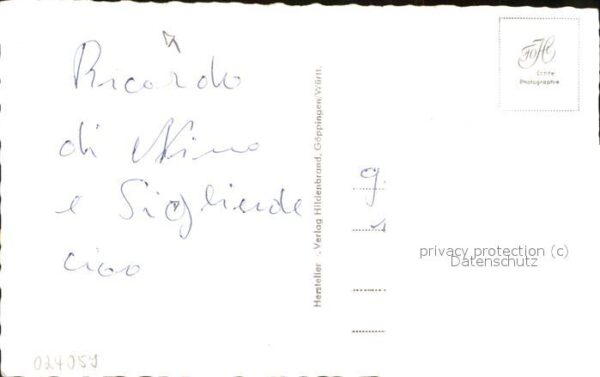 Ricordo
di Nino
e Siglinde
ciao
Hersteller Verlag Hildenbrand, Göppingen/Württ.
FOHI
Echte
Photographie
g.
privacy protection (c)
Datenschutz
024051